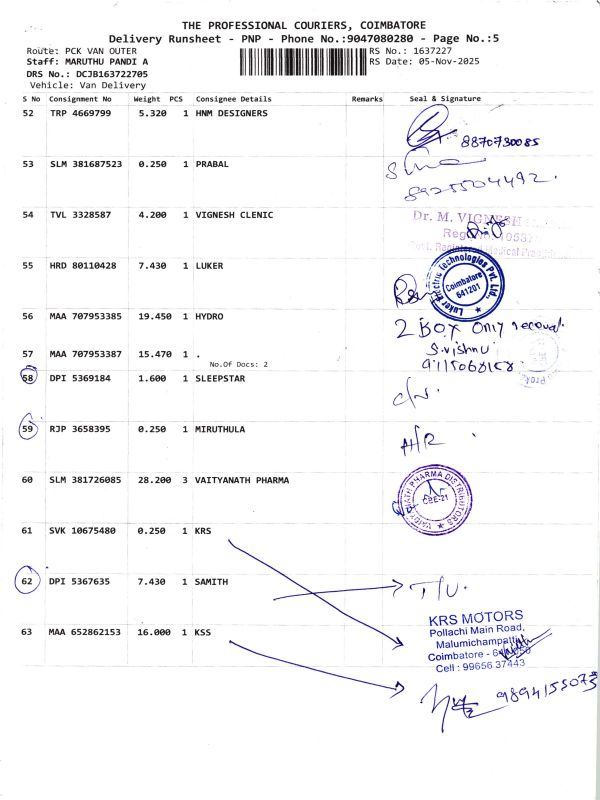 THE PROFESSIONAL COURIERS, COIMBATORE
Delivery Runsheet - PNP - Phone No.:9047080280 - Page No.:5
Route: PCK VAN OUTER RS No.: 1637227
Staff: MARUTHU PANDI A RS Date: 05-Nov-2025
DRS No.: DCJB163722705
Vehicle: Van Delivery
S No Consignment No Weight PCS Consignee Details Remarks Seal & Signature
52 TRP 4669799 5.320 1 HNM DESIGNERS
8870730085
53 SLM 381687523 0.250 1 PRABAL
8925504492.
54 TVL 3328587 4.200 1 VIGNESH CLENIC
Dr. M. VIGNESH
55 HRD 80110428 7.430 1 LUKER
Luker Electric Technologies Pvt. Ltd.
Coimbatore
641201
56 MAA 707953385 19.450 1 HYDRO
2 Box only
57 MAA 707953387 15.470 1 .
S.vishnu
No.Of Docs: 2
9115068158
58 DPI 5369184 1.600 1 SLEEPSTAR
59 RJP 3658395 0.250 1 MIRUTHULA
60 SLM 381726085 28.200 3 VAITYANATH PHARMA
PHARMA DISTRIBUTORS
61 SVK 10675480 0.250 1 KRS
62 DPI 5367635 7.430 1 SAMITH
KRS MOTORS
Pollachi Main Road,
63 MAA 652862153 16.000 1 KSS
Malumichampatti
Coimbatore -
Cell : 99656 37443
9894155073